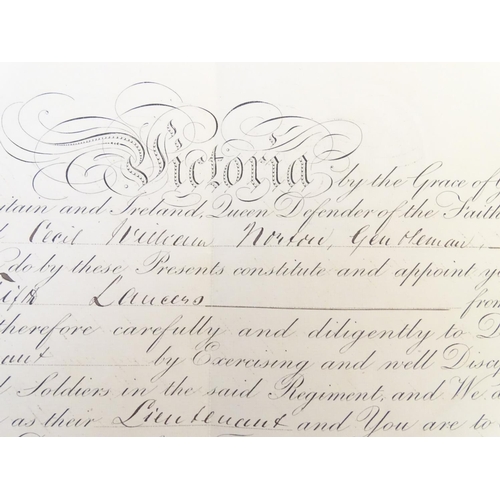 Victoria by the Grace of
itain and Ireland, Queen Defender of the Faith
Cecil William Norton, Gentleman,
do by these Presents constitute and appoint y
Fifth Lancers from
therefore carefully and diligently to D
ant by Exercising and well Disc
d Soldiers in the said Regiment, and We
as their Lieutenant and You are to